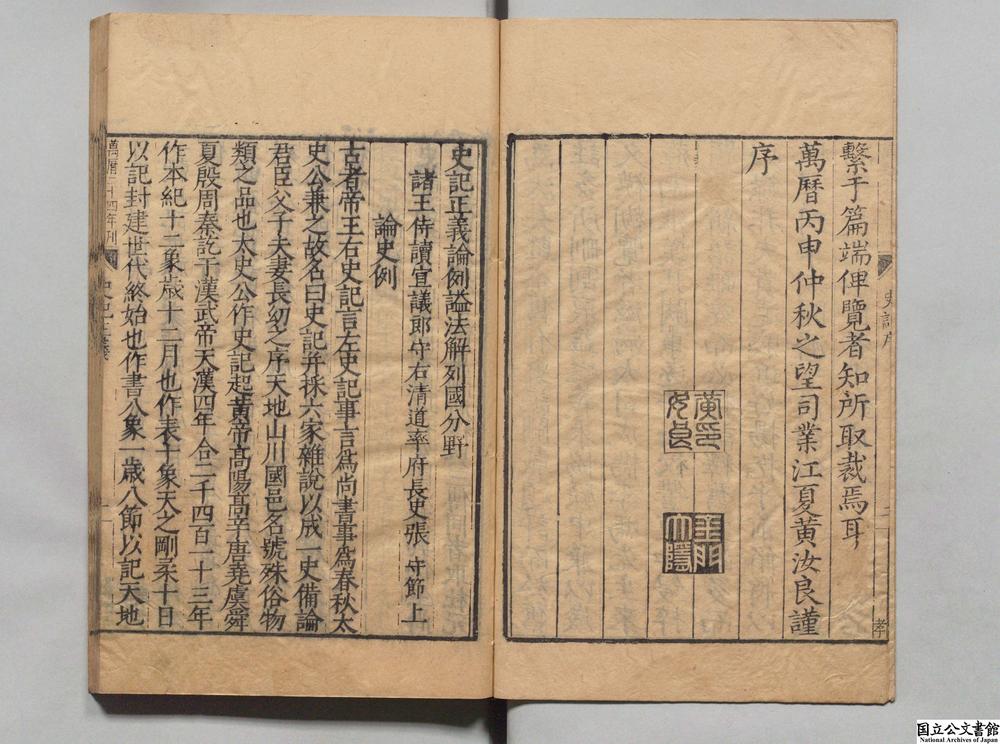 繫于篇端俾覽者知所取裁焉耳
萬曆丙申仲秋之望司業江夏黃汝良謹
序
黃印
汝良
金門
大隱
史記序
二
史記正義論例謚法解列國分野
諸王侍讀宣議郎守右清道率府長史張 守節上
論史例
古者帝王右史記言左史記事言爲尚書事爲春秋太
史公兼之故名曰史記幷採六家雜說以成一史備論
君臣父子夫妻長幼之序天地山川國邑名號殊俗物
類之品也太史公作史記起黃帝高陽高辛唐堯虞舜
夏殷周秦訖于漢武帝天漢四年合二千四百一十三年
作本紀十二象歲十二月也作表十象天之剛柔十日
以記封建世代終始也作書八象一歲八節以記天地
萬曆二十四年刊
史記正義
一
国立公文書館
National Archives of Japan